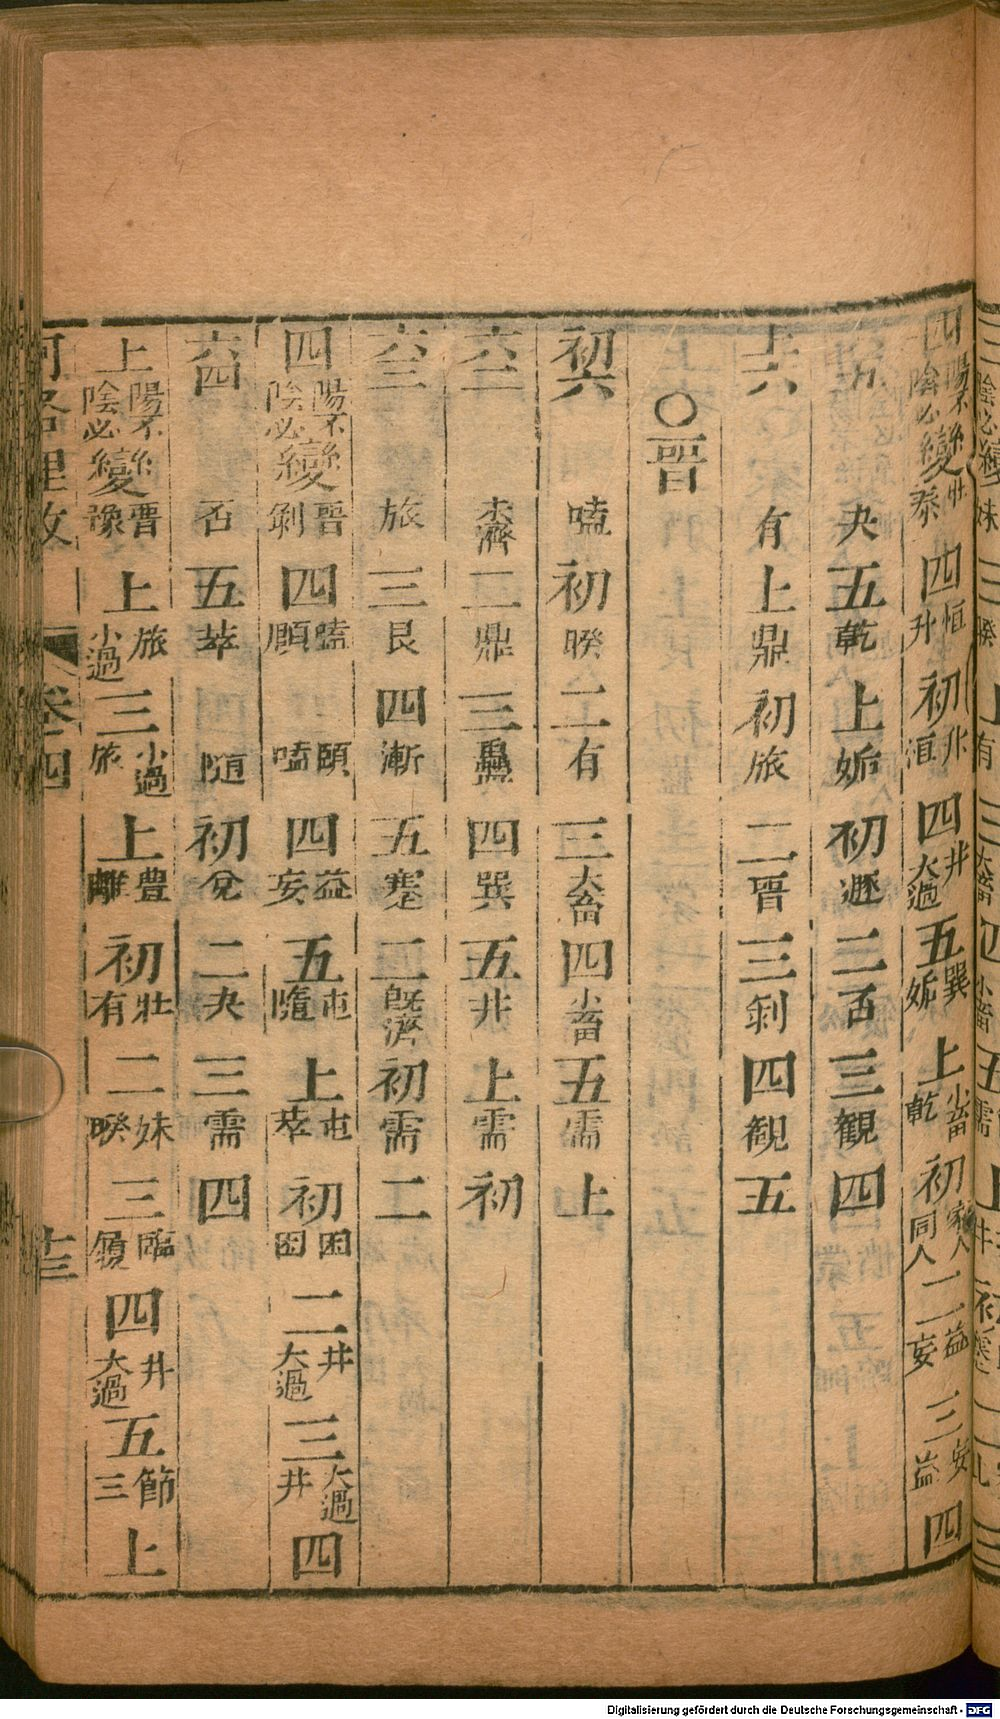 四陽不陰必變壯泰四恒升初升恒四井大過五巽姤上小畜乾初家人同人二益妄三妄益四
六五夬五乾上姤初遯二否三觀四
上六有上鼎初旅二晋三剝四觀五
○晋
初六嗑初睽二有三大畜四小畜五需上
六二未濟二鼎三蠱四巽五井上需初
六三旅三艮四漸五蹇二旣濟初需二
四陽不陰必變晋剝四嗑頤頤嗑四益妄五屯隨上屯萃初困困二井大過三大過井四
六四否五萃隨初兌二夬三需四
上陽不陰必變晋豫上旅小過三小過旅上豊離初壯有二妹睽三臨履四井大過五節三上
河洛理數 卷四 十三
Digitalisierung gefördert durch die Deutsche Forschungsgemeinschaft - DFG